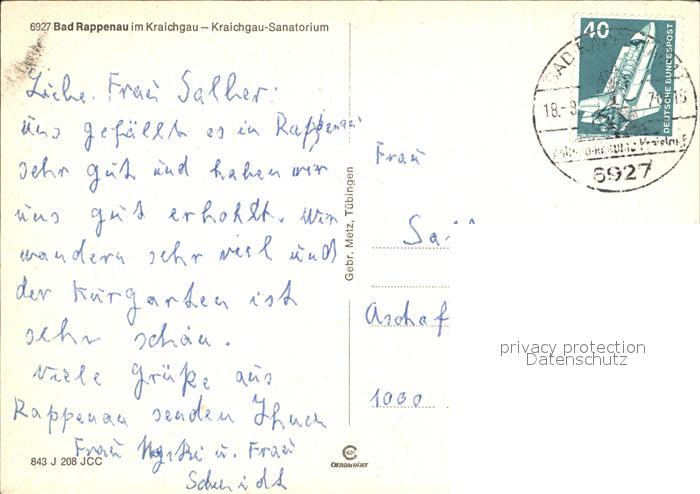 6927 Bad Rappenau im Kraichgau – Kraichgau-Sanatorium
Liebe Frau Salher:
uns gefällt es in Rappenau
sehr gut und haben wir
uns gut erhohlt. Wir
wandern sehr viel und
der Kurgarten ist
sehr schön.
Viele Grüße aus
Rappenau senden Ihnen
Frau u. Frau
Schmidt
843 J 208 JCC
Gebr. Metz, Tübingen
40
DEUTSCHE BUNDESPOST
18.-9.
6927
Frau
Aschaf
1000
privacy protection
Datenschutz